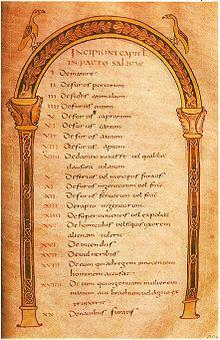 INCIPIUNT CAPITL
IN PACTO SALICAE
I De manire
II De furtis porcorum
III De furtis animalium
IIII De furtis ovium
V De furtis caprarum
VI De furtis canum
VII De furtis avium
VIII De furtis apium
VIIII De damno in messe vel qualibe
clausura inlatum
X De servis vel mancipiis furatis
XI De furtis ingenuorum vel frac
XII De furtis servorum vel frac
XIII De rapto ingenuorum
XIIII De superventis vel expoliat
XV De homicidiis vel si quis uxorem
alienam tulerit
XVI De incendiis
XVII De vulneribus
XVIII De eum qui innocentem
hominem accusat
XVIIII De eum qui ingenuam mulierem
manum aut brachium vel digito ex
XX De navibus furatis